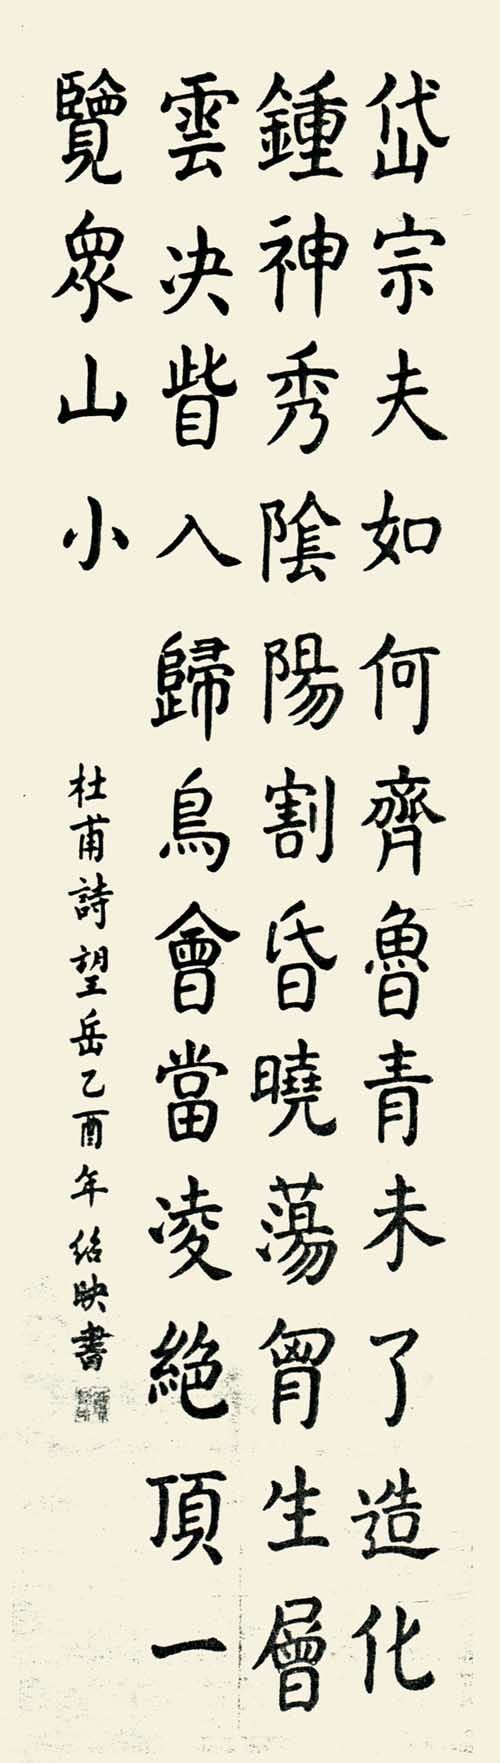 岱宗夫如何齊魯青未了造化
鍾神秀陰陽割昏曉蕩胷生層
雲决眥入歸鳥會當凌絕頂一
覽眾山小
杜甫詩望岳乙酉年紹映書